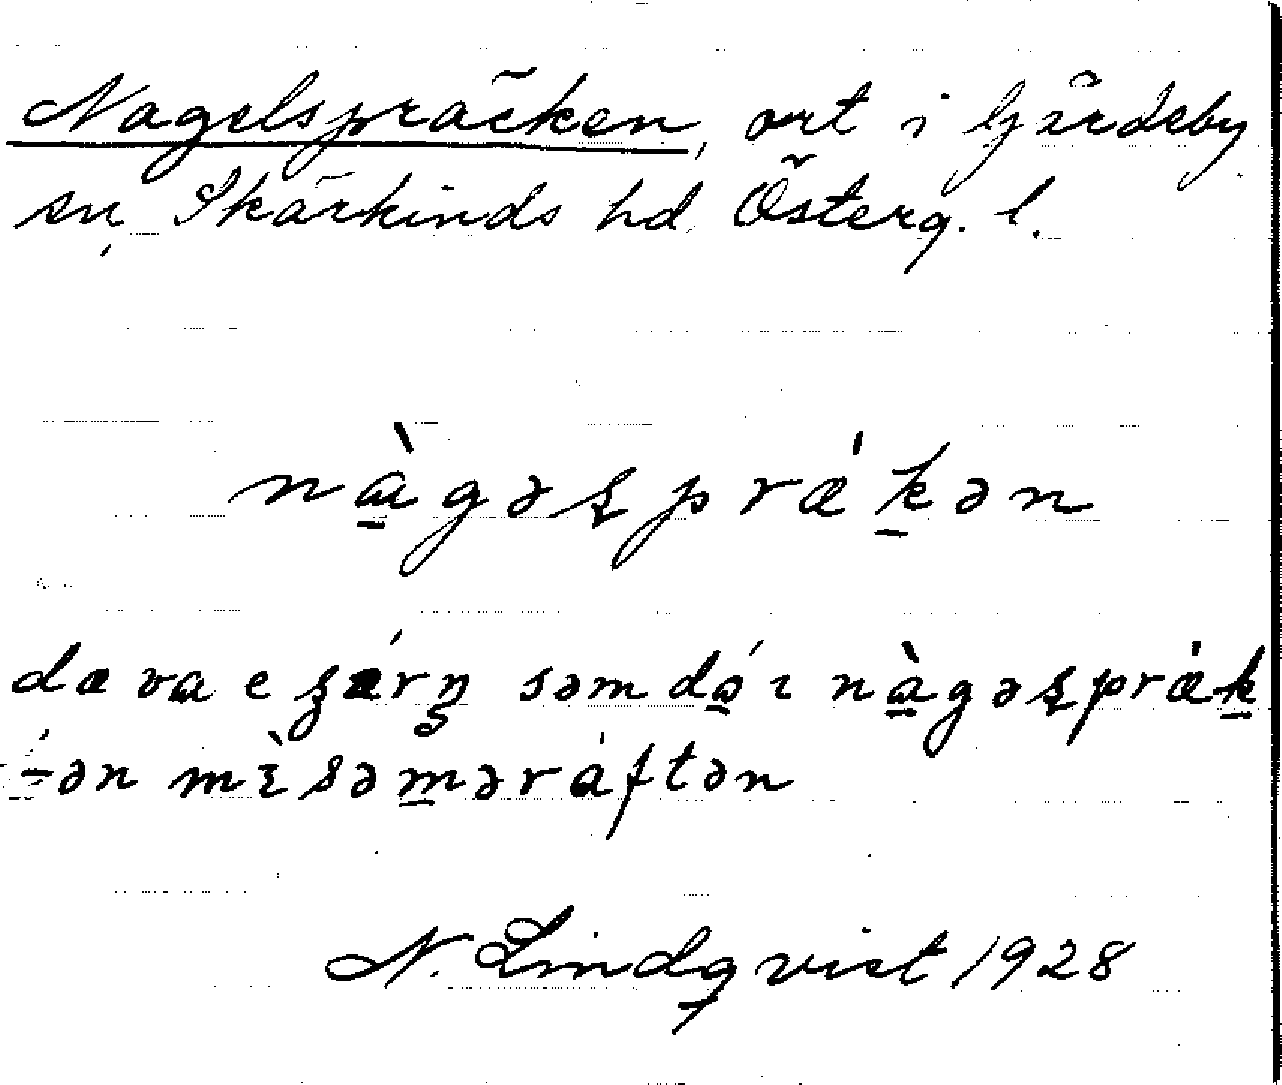 Nagelspräcken, ort i Gärdeby
sn, Skärkinds hd, Österg. l.
nàgəsprǽkən
dæ va e sǽrŋ səm dǿ ı nàgəsprǽk
-ən mìsəmərάftən
N. Lindqvist 1928